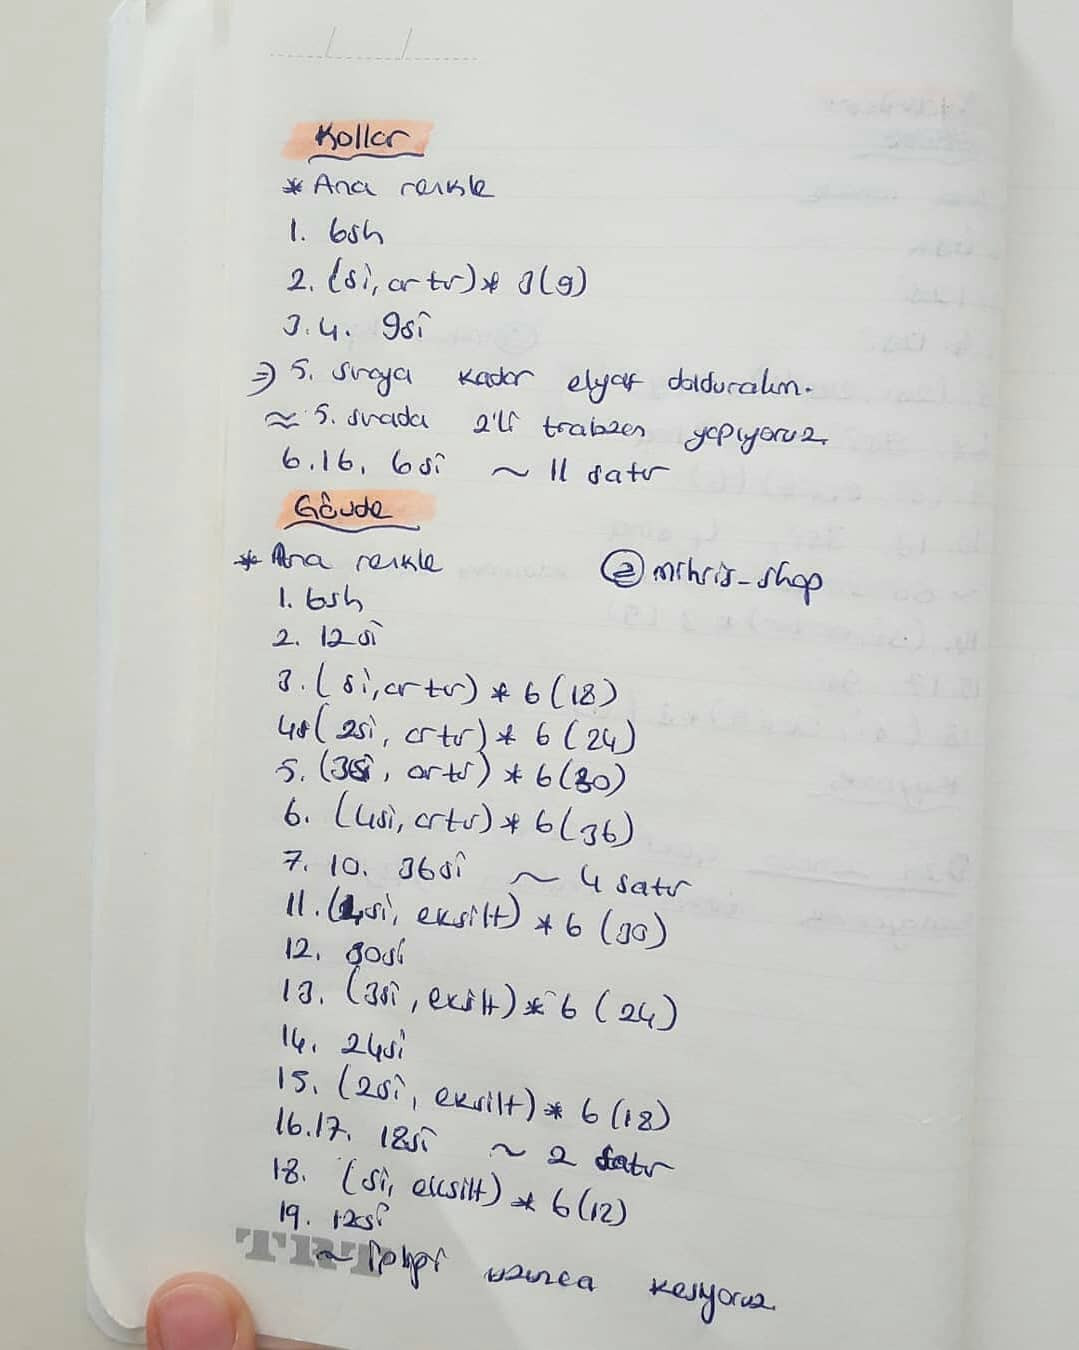 Kollar
* Ana renkle
1. 6sh
2. (si, artır)* 3(9)
3.4. 9si
⇒ 5. sıraya kadar elyaf dolduralım.
≈ 5. sırada 2'li trabzan yapıyoruz.
6.16. 6si ~ 11 satır
Gövde
* Ana renkle
@mihris_shop
1. 6sh
2. 12si
3. (si, artır) * 6 (18)
4. (2si, artır) * 6 (24)
5. (3si, artır) * 6 (30)
6. (4si, artır) * 6 (36)
7. 10. 36si ~ 4 satır
11. (4si, eksilt) * 6 (30)
12. 30si
13. (3si, eksilt) * 6 (24)
14. 24si
15. (2si, eksilt) * 6 (18)
16.17. 18si ~ 2 satır
18. (si, eksilt) * 6 (12)
19. 12si
TRT
~ ipliği uzunca kesiyoruz.